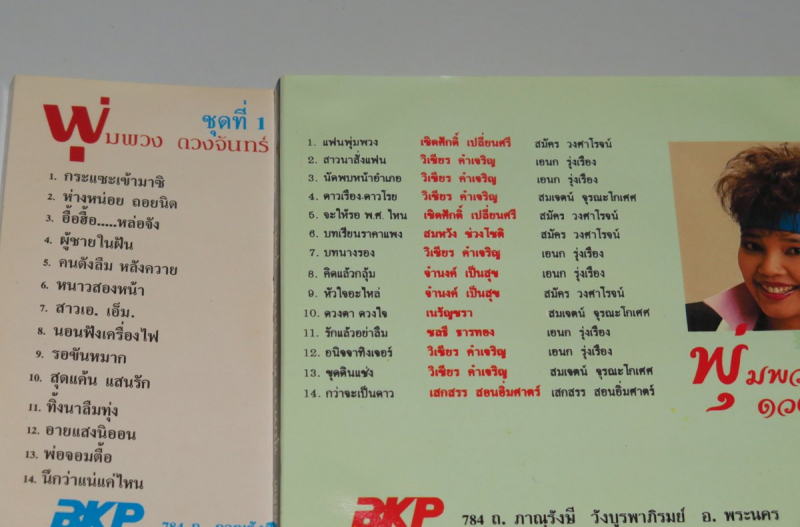 พุ่มพวง ดวงจันทร์
ชุดที่ 1
1. กระแซะเข้ามาซิ
2. ห่างหน่อย ถอยนิด
3. อื้อฮื้อ.....หล่อจัง
4. ผู้ชายในฝัน
5. คนดังลืม หลังควาย
6. หนาวสองหน้า
7. สาวเอ. เอ็ม.
8. นอนฟังเครื่องไฟ
9. รอขันหมาก
10. สุดแค้น แสนรัก
11. ทิ้งนาลืมทุ่ง
12. อายแสงนิออน
13. พ่อจอมตื้อ
14. นึกว่าแน่แค่ไหน
BKP
1. แฟนพุ่มพวง เชิดศักดิ์ เปลี่ยนศรี สมัคร วงศาโรจน์
2. สาวนาสั่งแฟน วิเชียร คำเจริญ เอนก รุ่งเรือง
3. นัดพบหน้าอำเภอ วิเชียร คำเจริญ เอนก รุ่งเรือง
4. ดาวเรือง-ดาวโรย วิเชียร คำเจริญ สมเจตน์ จุรณะโกเศศ
5. จะให้รอ พ.ศ. ไหน เชิดศักดิ์ เปลี่ยนศรี สมัคร วงศาโรจน์
6. บทเรียนราคาแพง สมหวัง ช่วงโชติ สมัคร วงศาโรจน์
7. บทนางรอง วิเชียร คำเจริญ เอนก รุ่งเรือง
8. คิดแล้วกลุ้ม จำนงค์ เป็นสุข เอนก รุ่งเรือง
9. หัวใจอะไหล่ จำนงค์ เป็นสุข สมัคร วงศาโรจน์
10. ดวงตา ดวงใจ เนรัญชรา สมเจตน์ จุรณะโกเศศ
11. รักแล้วอย่าลืม ชลธี ธารทอง เอนก รุ่งเรือง
12. อนิจจาทิงเจอร์ วิเชียร คำเจริญ เอนก รุ่งเรือง
13. ขุดดินแช่ง วิเชียร คำเจริญ สมเจตน์ จุรณะโกเศศ
14. กว่าจะเป็นดาว เสกสรร สอนอิ่มศาตร์ เสกสรร สอนอิ่มศาตร์
พุ่มพว
ดวง
BKP 784 ถ. ภาณุรังษี วังบูรพาภิรมย์ อ. พระนคร